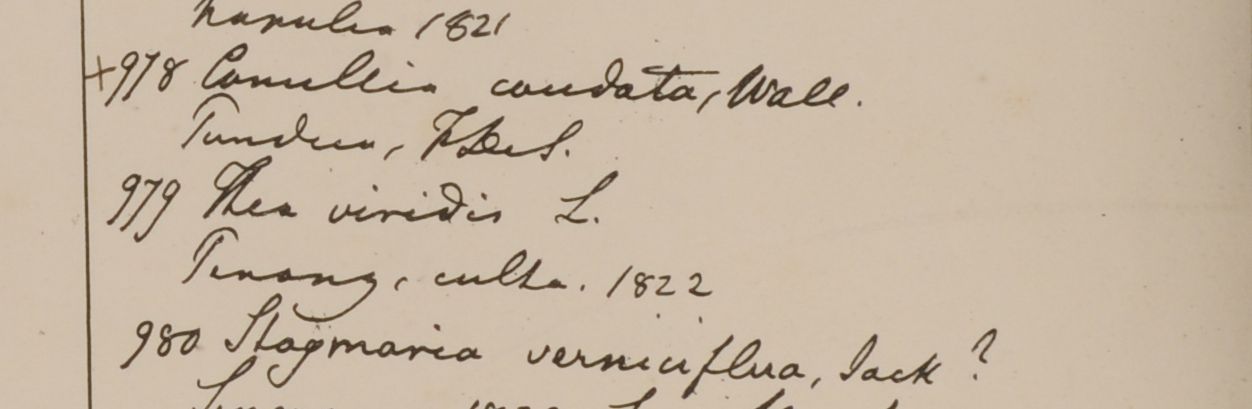 Napalia 1821
+978 Camellia caudata, Wall.
Pundua, F.DeS.
979 Thea viridis L.
Penang, culta. 1822
980 Stagmaria verniciflua, Jack ?